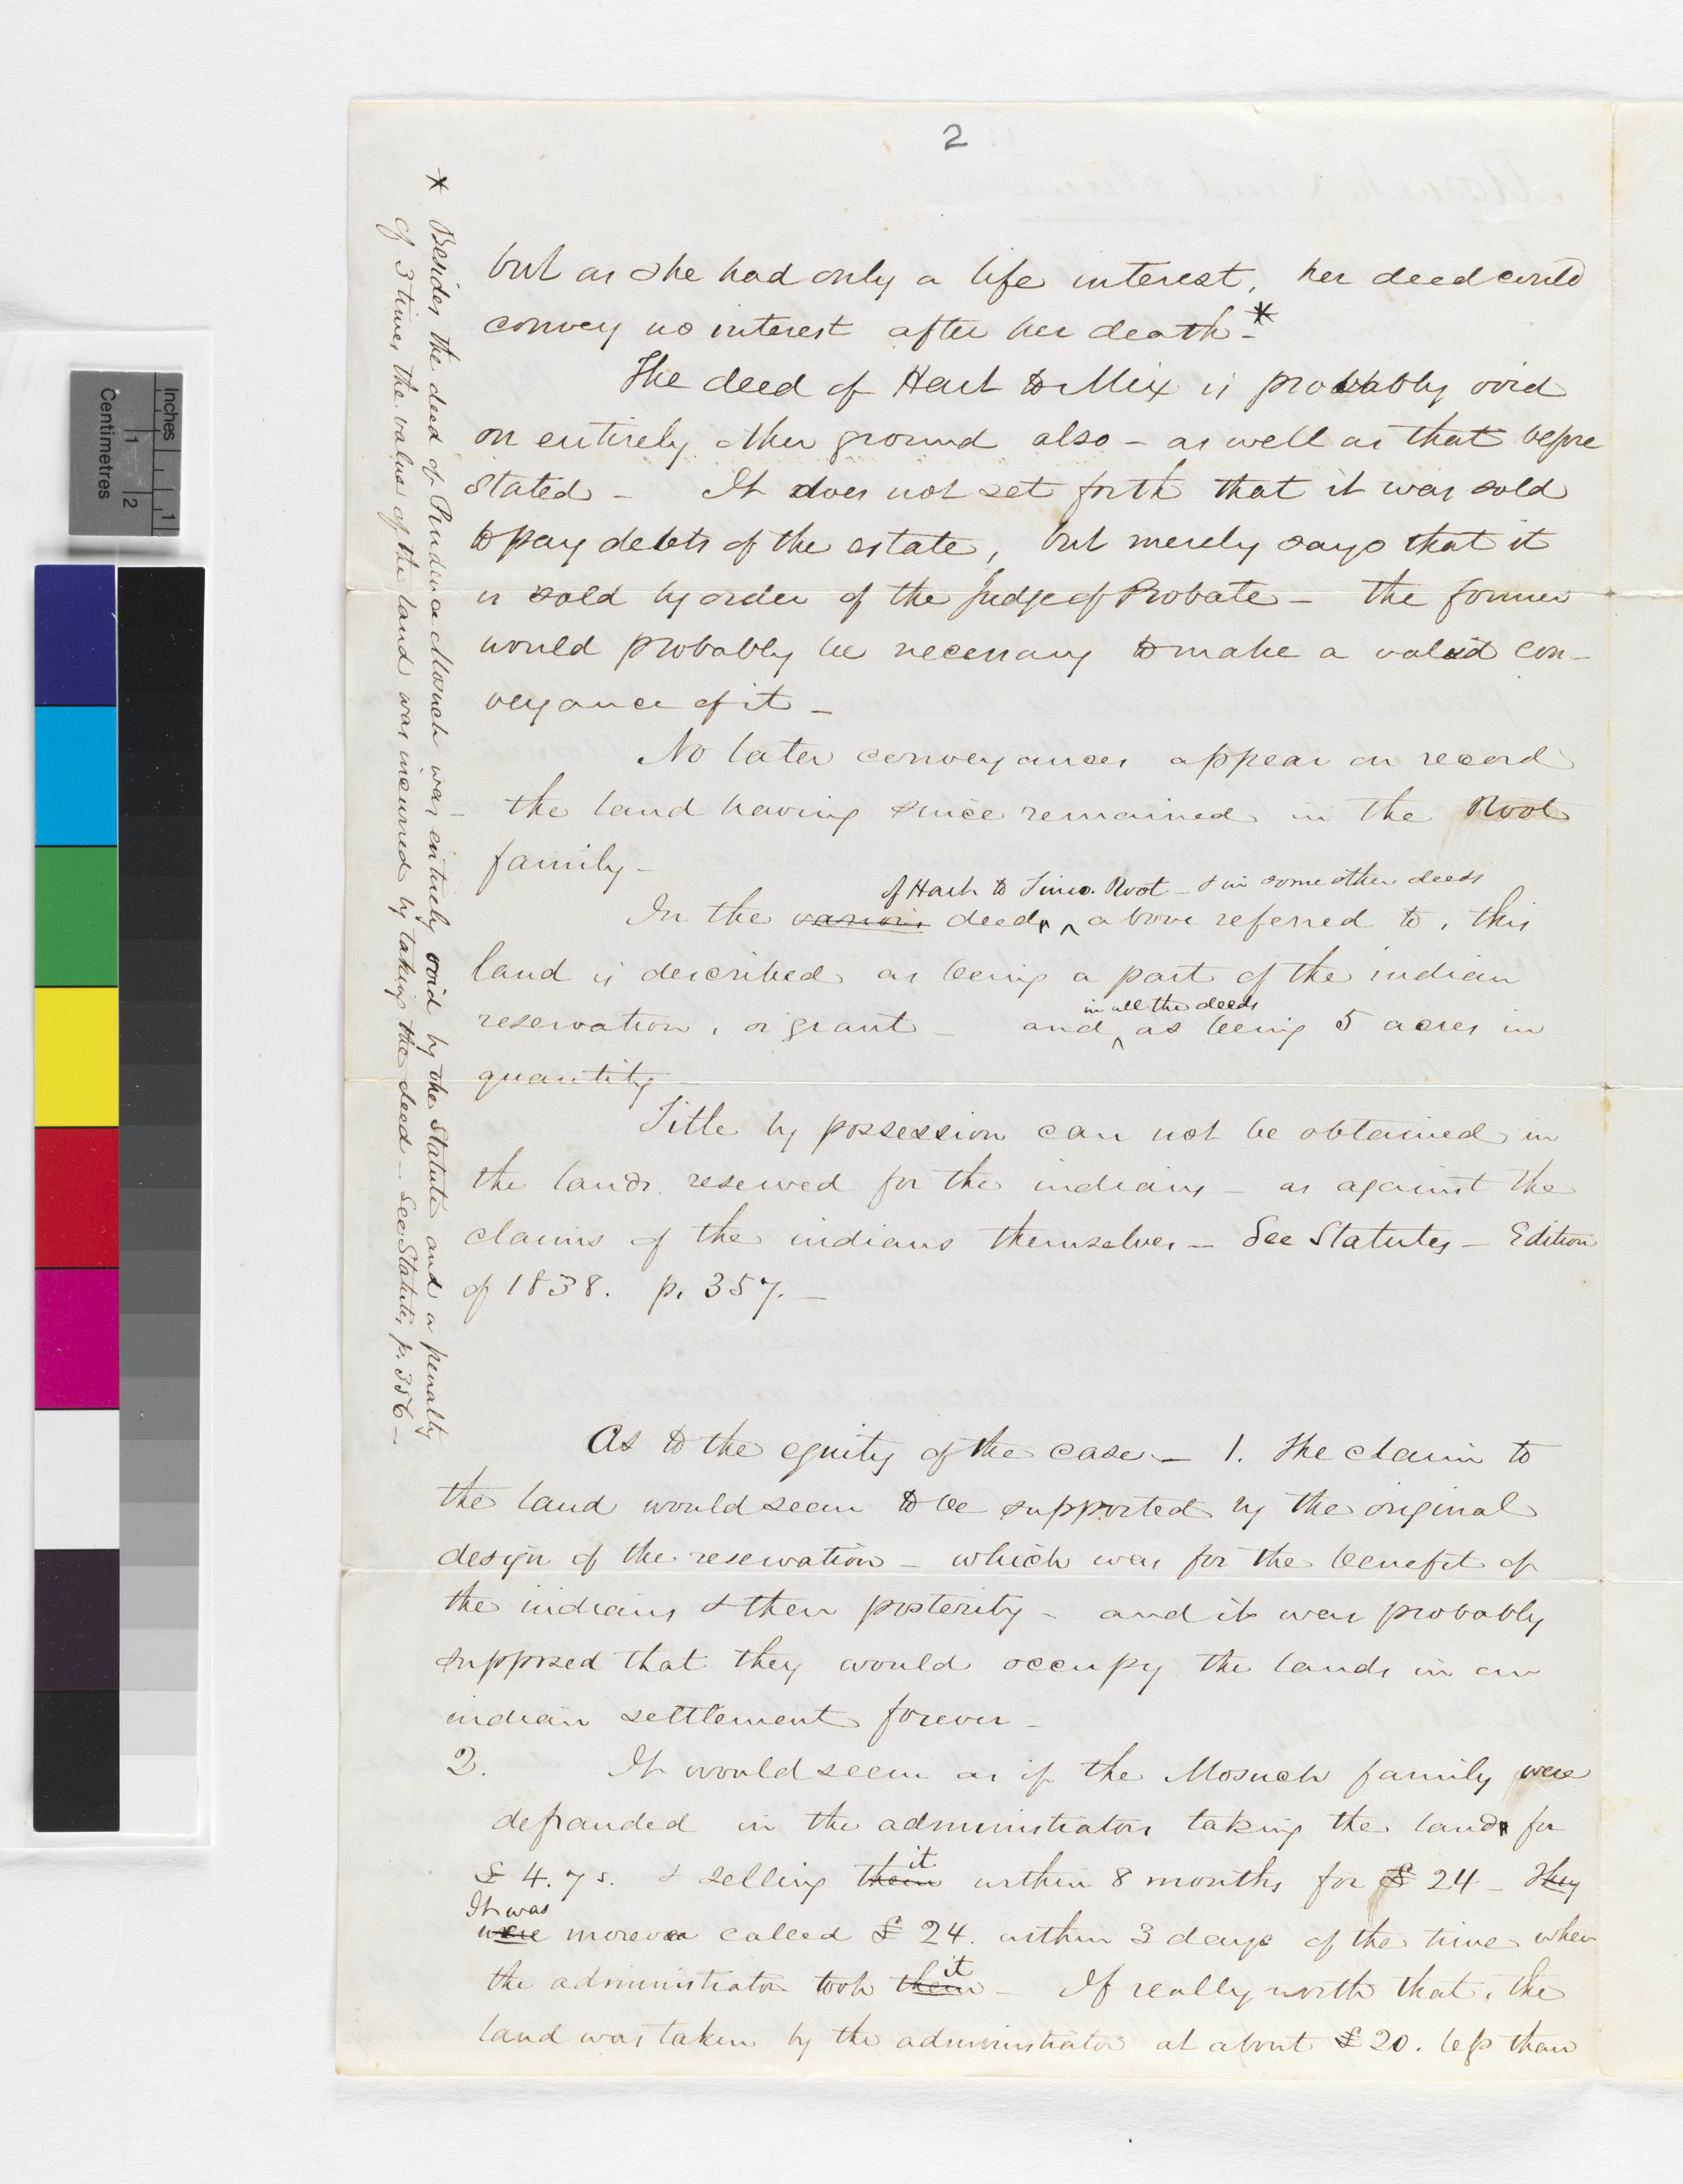 2
but as she had only a life interest, her deed could
convey no interest after her death - *
The deed of Hart to Mix is probably void
on entirely other ground also - as well as that before
stated - It does not set forth that it was sold
to pay debts of the estate, but merely says that it
is sold by order of the Judge of Probate - the former
would probably be necessary to make a valid con-
veyance of it -
No later conveyances appear on record
the land having since remained in the Root
family -
of Hart to Timo. Root - & in some other deeds
In the various deeds ^ above referred to, this
land is described as being a part of the indian
in all the deeds
reservation, or grant - and ^ as being 5 acres in
quantity -
Title by possession can not be obtained in
the lands reserved for the indians - as against the
claims of the indians themselves - See Statutes - Edition
of 1838. p. 357. -
As to the equity of the case - 1. The claim to
the land would seem to be supported by the original
design of the reservation - which was for the benefit of
the indians & their posterity - and it was probably
supposed that they would occupy the lands in an
indian settlement forever -
2. It would seem as if the Mosuck family were
defrauded in the administrators taking the land for
it
£ 4. 7 s. & selling them within 8 months for £ 24 - They
It was
were moreover called £ 24. within 3 days of the time when
it
the administrator took them - If really worth that, the
land was taken by the administrator at about £ 20. less than
* Besides the deed of Prudence Mosuck was entirely void by the Statute and a penalty
of 3 times the value of the land was incurred by taking the deed - See Statutes, p. 356 -
Inches
1
Centimetres
1
2